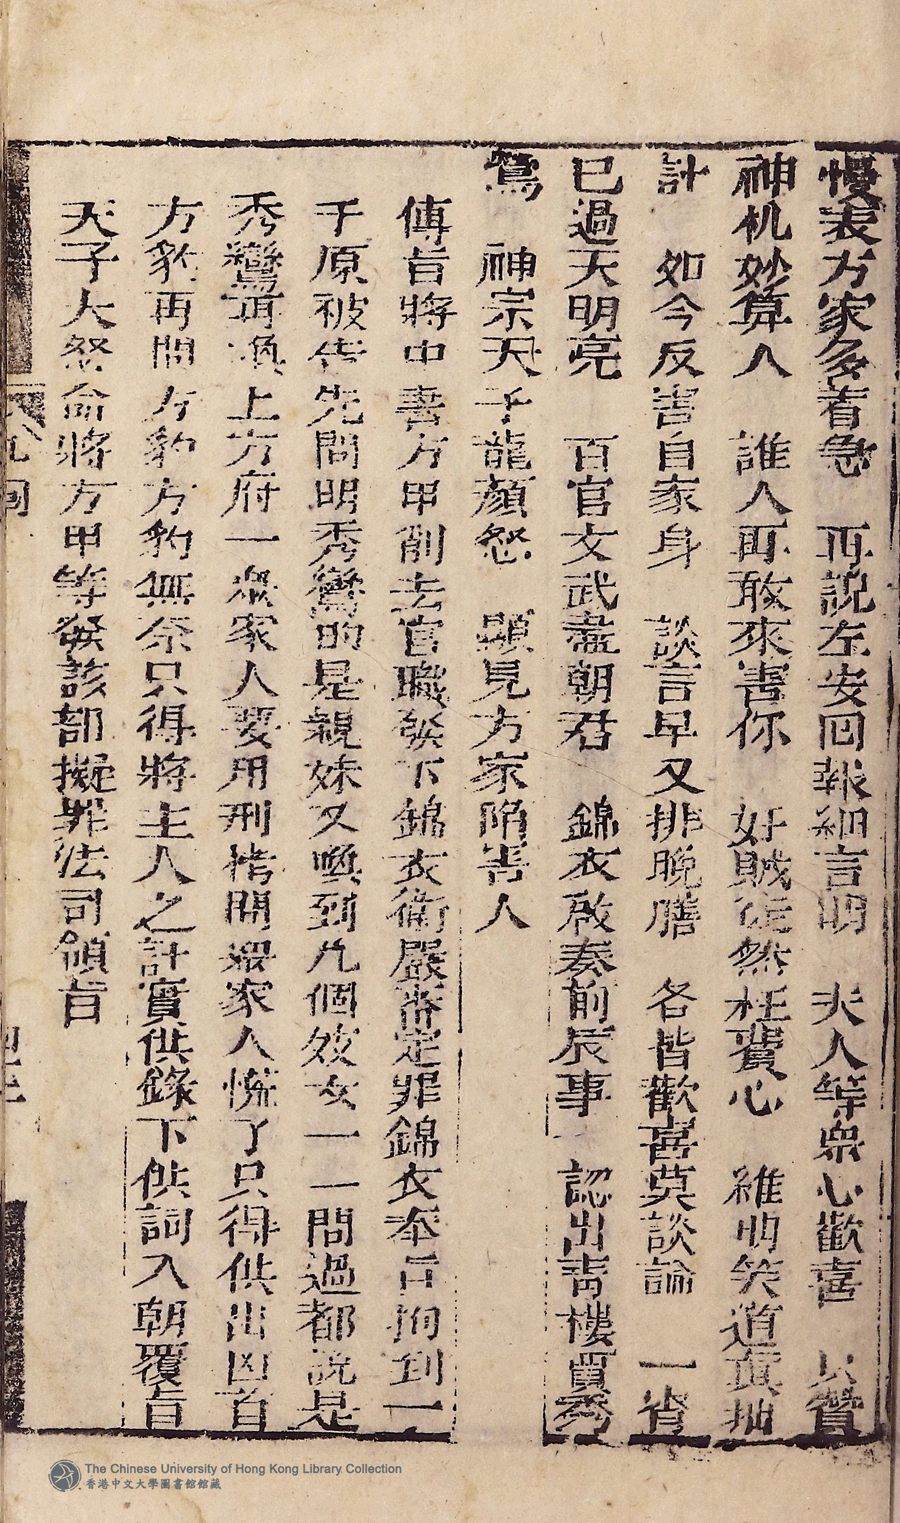 慢表方家多着急　再說左安回報細言明　夫人等衆心歡喜　只贊
神机妙算人　誰人再敢來害你　奸賊徒然枉費心　維明笑道真拙
計　如今反害自家身　談言早又排晚膳　各皆歡喜莫談論　一宵
已過天明亮　百官文武盡朝君　錦衣啟奏前辰事　認出青樓賈秀
鸞　神宗天子龍顏怒　顯見方家陷害人
傳旨將中書方甲削去官職發下錦衣衛嚴審定罪錦衣奉旨拘到一
干原被告先問明秀鸞的是親妹又喚到九個妓女一一問過都說是
秀鸞再喚上方府一衆家人要用刑拷問衆家人慌了只得供出凶首
方豹再問方豹方豹無奈只得將主人之計實供錄下供詞入朝覆旨
天子大怒命將方甲等發該部擬罪法司領旨
九回
The Chinese University of Hong Kong Library Collection
香港中文大學圖書館館藏